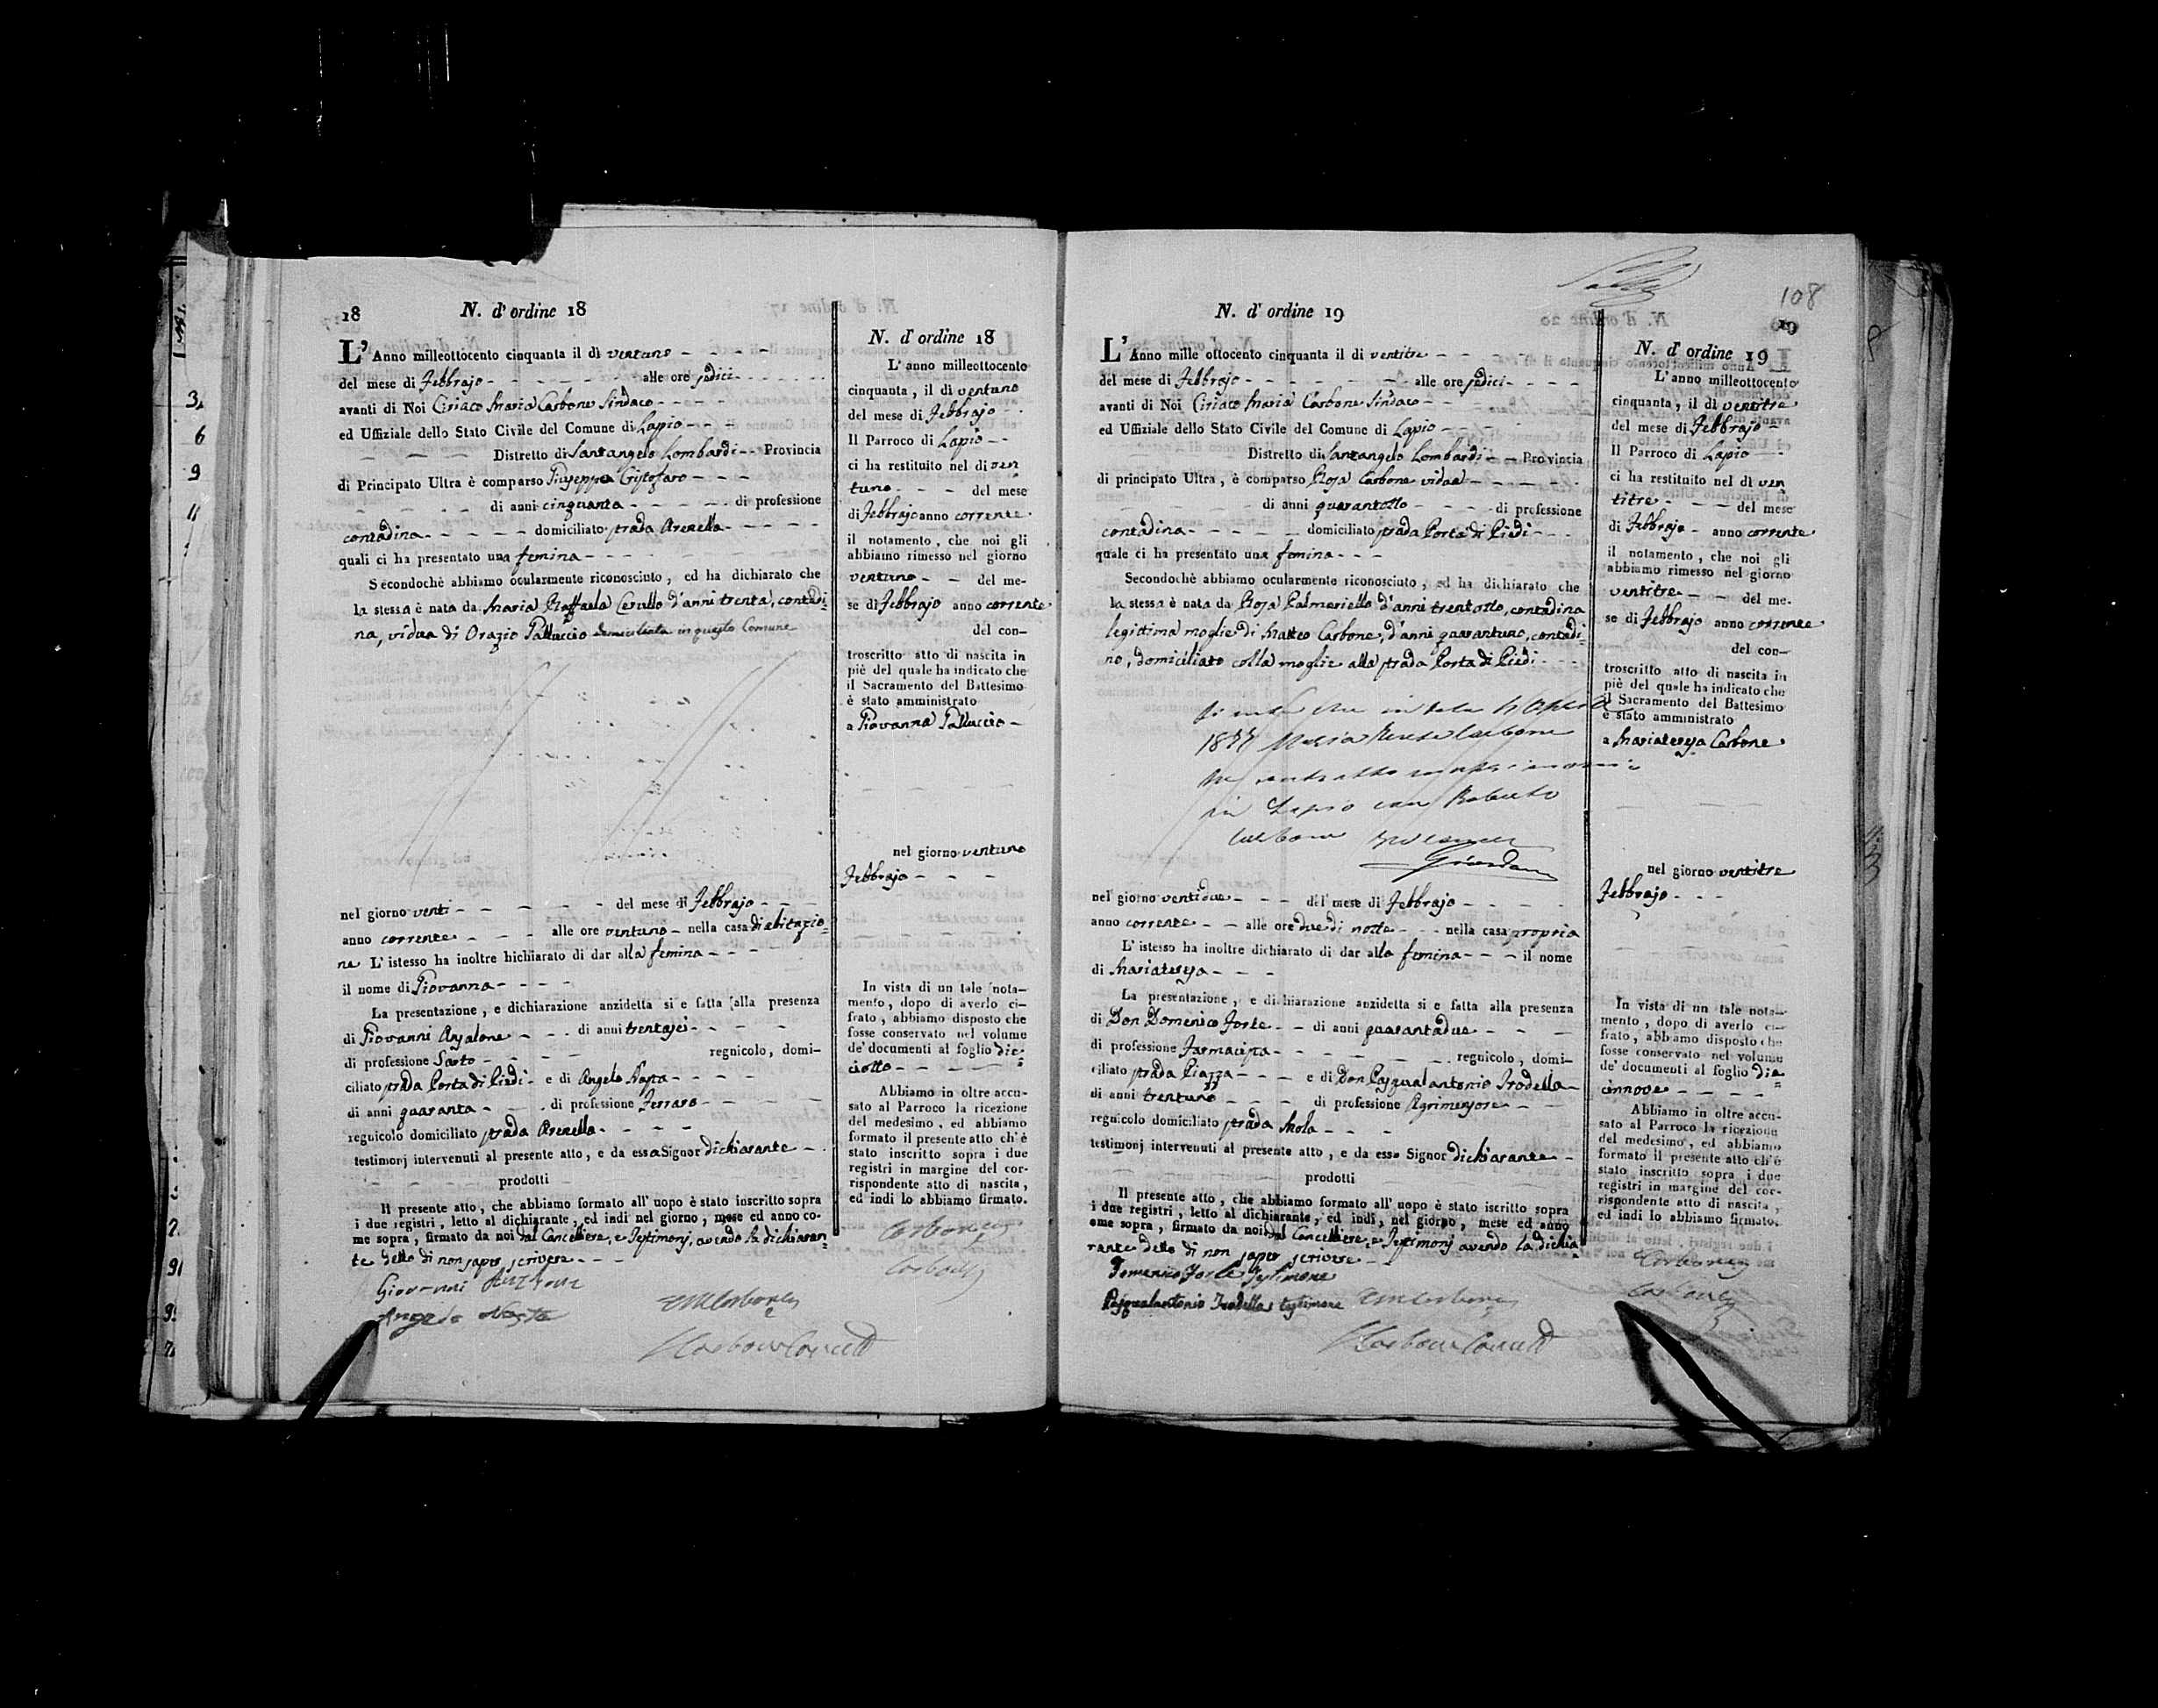 18
N. d'ordine 18
L'Anno milleottocento cinquanta il di ventuno
del mese di Febbrajo alle ore sedici
avanti di Noi Ciriaco Maria Carbone Sindaco
ed Uffiziale dello Stato Civile del Comune di Lapio
Distretto di Santangelo Lombardi Provincia
di Principato Ultra è comparso Giuseppa Cristofaro
di anni cinquanta di professione
contadina domiciliato strada Arenella
quali ci ha presentato una femina
Secondochè abbiamo ocularmente riconosciuto, ed ha dichiarato che
la stessa è nata da Maria Raffaela Cerullo d'anni trenta, contadi=
na, vidua di Orazio Palluccio domiciliata in questo Comune
nel giorno venti del mese di Febbrajo
anno corrente alle ore ventuno nella casa di abitazio=
ne L'istesso ha inoltre hichiarato di dar alla femina
il nome di Giovanna
La presentazione, e dichiarazione anzidetta si e fatta alla presenza
di Giovanni Anzalone di anni trentasei
di professione Sarto regnicolo, domi-
ciliato strada Porta di Piedi e di Angelo Nasta
di anni quaranta di professione Ferraro
regnicolo domiciliato strada Arenella
testimonj intervenuti al presente atto, e da essa Signor dichiarante
prodotti
Il presente atto, che abbiamo formato all'uopo è stato inscritto sopra
i due registri, letto al dichiarante, ed indi nel giorno, mese ed anno co-
me sopra, firmato da noi dal Cancelliere, e Testimonj, avendo la dichiaran=
te detto di non saper scrivere
Giovanni Anzalone
Angelo Nasta
N. d'ordine 18
L'anno milleottocento
cinquanta, il di ventuno
del mese di Febbrajo
Il Parroco di Lapio
ci ha restituito nel di ven
tuno del mese
di Febbrajo anno corrente
il notamento, che noi gli
abbiamo rimesso nel giorno
ventuno del me-
se di Febbrajo anno corrente
del con-
troscritto atto di nascita in
piè del quale ha indicato che
il Sacramento del Battesimo
è stato amministrato
a Giovanna Palluccio
nel giorno ventuno
Febbrajo
In vista di un tale nota-
mento, dopo di averlo ci-
frato, abbiamo disposto che
fosse conservato nel volume
de'documenti al foglio dic=
iotto
Abbiamo in oltre accu-
sato al Parroco la ricezione
del medesimo, ed abbiamo
formato il presente atto ch'è
stato inscritto sopra i due
registri in margine del cor-
rispondente atto di nascita,
ed indi lo abbiamo firmato.
108
19
N. d'ordine 19
L'Anno mille ottocento cinquanta il di ventitre
del mese di Febbrajo alle ore sedici
avanti di Noi Ciriaco Maria Carbone Sindaco
ed Uffiziale dello Stato Civile del Comune di Lapio
Distretto di Santangelo Lombardi Provincia
di principato Ultra, è comparso Rosa Carbone vidua
di anni quarantotto di professione
contadina domiciliato strada Porta di Piedi
quale ci ha presentato una femina
Secondochè abbiamo ocularmente riconosciuto, ed ha dichiarato che
la stessa è nata da Rosa Palmariello d'anni trentotto, contadina
legittima moglie di Matteo Carbone, d'anni quarantuno, contadi=
no, domiciliato colla moglie alla strada Porta di Piedi
Maria Teresa Carbone
in Lapio con Roberto
Carbone
nel giorno ventidue del mese di Febbrajo
anno corrente alle ore due di notte nella casa propria
L'istesso ha inoltre dichiarato di dar alla femina il nome
di Mariateresa
La presentazione, e dichiarazione anzidetta si e fatta alla presenza
di Don Domenico Forte di anni quarantadue
di professione Farmacista regnicolo, domi-
ciliato strada Piazza e di Don Pasqualantonio Trodella
di anni trentuno di professione Agrimensore
regnicolo domiciliato strada Mola
testimonj intervenuti al presente atto, e da esso Signor dichiarante
prodotti
Il presente atto, che abbiamo formato all'uopo è stato iscritto sopra
i due registri, letto al dichiarante, ed indi, nel giorno, mese ed anno
ome sopra, firmato da noi dal Cancelliere, e Testimonj avendo la dichia=
rante detto di non saper scrivere
Domenico Forte Testimone
Pasqualantonio Trodella testimone
N. d'ordine 19
L'anno milleottocento
cinquanta, il di ventitre
del mese di Febbrajo
Il Parroco di Lapio
ci ha restituito nel di ven
titre del mese
di Febbrajo anno corrente
il notamento, che noi gli
abbiamo rimesso nel giorno
ventitre del me-
se di Febbrajo anno corrente
del con-
troscritto atto di nascita in
piè del quale ha indicato che
il Sacramento del Battesimo
è stato amministrato
a Mariateresa Carbone
nel giorno ventitre
Febbrajo
In vista di un tale nota-
mento, dopo di averlo ci-
frato, abbiamo disposto che
fosse conservato nel volume
de'documenti al foglio die=
cinnove
Abbiamo in oltre accu-
sato al Parroco la ricezione
del medesimo, ed abbiamo
formato il presente atto ch'è
stato inscritto sopra i due
registri in margine del cor-
rispondente atto di nascita,
ed indi lo abbiamo firmato.